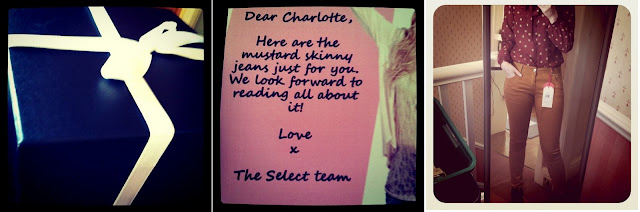 Dear Charlotte,
Here are the
mustard skinny
jeans just for you.
We look forward to
reading all about
it!
Love
x
The Select team